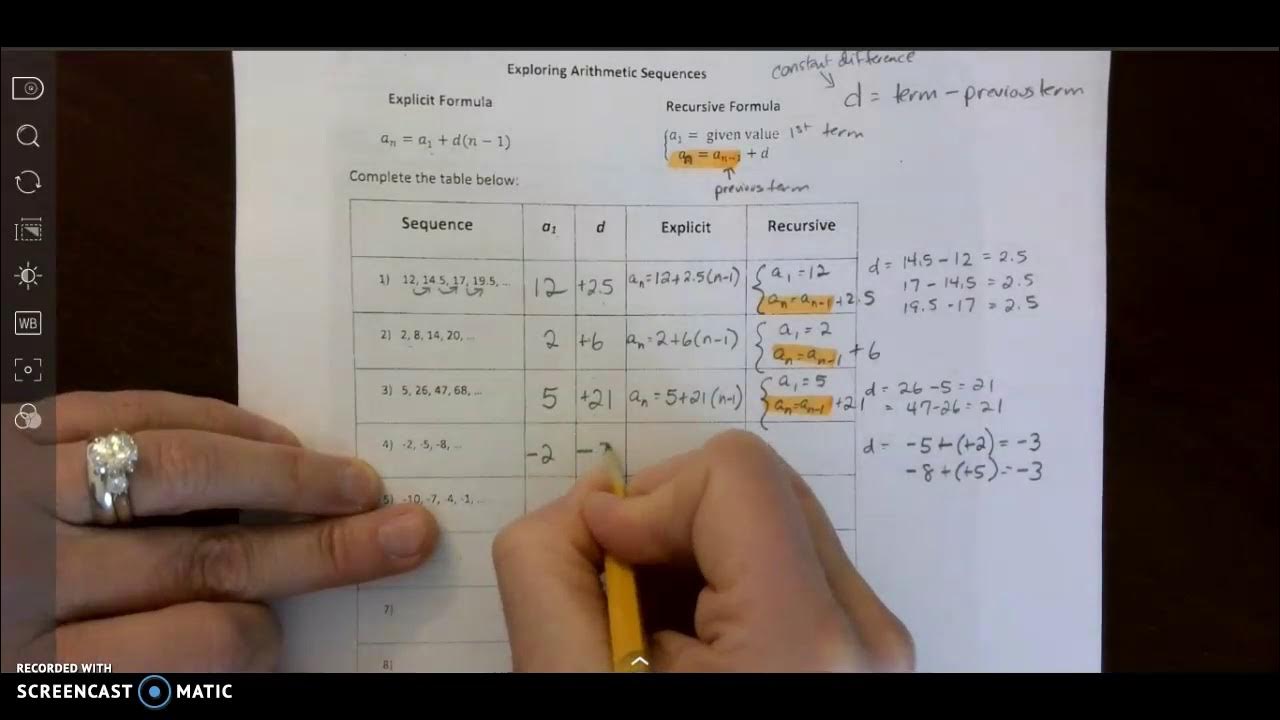 constant difference
Exploring Arithmetic Sequences
d = term - previous term
Explicit Formula
Recursive Formula
aₙ = a₁ + d(n − 1)
{a₁ = given value 1st term
aₙ = aₙ₋₁ + d
previous term
Complete the table below:
Sequence a₁ d Explicit Recursive
1) 12, 14.5, 17, 19.5, ... 12 +2.5 aₙ=12+2.5(n-1) { a₁=12
aₙ=aₙ₋₁+2.5
d= 14.5-12 = 2.5
17-14.5 = 2.5
19.5-17 = 2.5
2) 2, 8, 14, 20, ... 2 +6 aₙ=2+6(n-1) { a₁=2
aₙ=aₙ₋₁+6
3) 5, 26, 47, 68, ... 5 +21 aₙ=5+21(n-1) { a₁=5
aₙ=aₙ₋₁+21
d= 26-5=21
= 47-26=21
4) -2, -5, -8, ... -2 -
d= -5+(+2)=-3
-8+(+5)=-3
5) -10, -7, -4, -1, ...
7)
8)
WB
RECORDED WITH
SCREENCAST MATIC